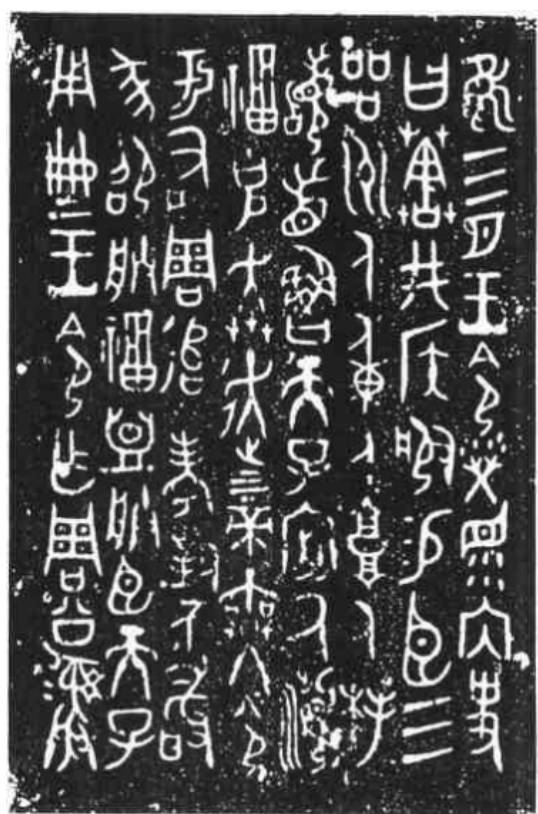 隹三月王令榮眔內史
曰井侯服易臣三
品州人重人人拜
稽首魯天子厥瀕
福克奔走上下帝無冬令
于又周追考對不敢
㒸卲朕福盟朕臣天子
用典王令乍周公彝